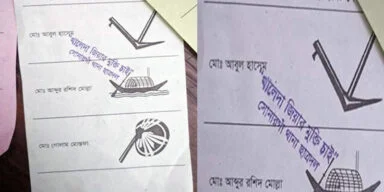 মোঃ আবুল হাসেম
খালেদা জিয়ার মুক্তি চাই
সোনারগাঁ থানা ছাত্রদল
মোঃ আব্দুর রশিদ মোল্লা
মোঃ গোলাম মোস্তফা
মোঃ আবুল হাসেম
খালেদা জিয়ার মুক্তি চাই
সোনারগাঁ থানা ছাত্রদল
মোঃ আব্দুর রশিদ মোল্লা